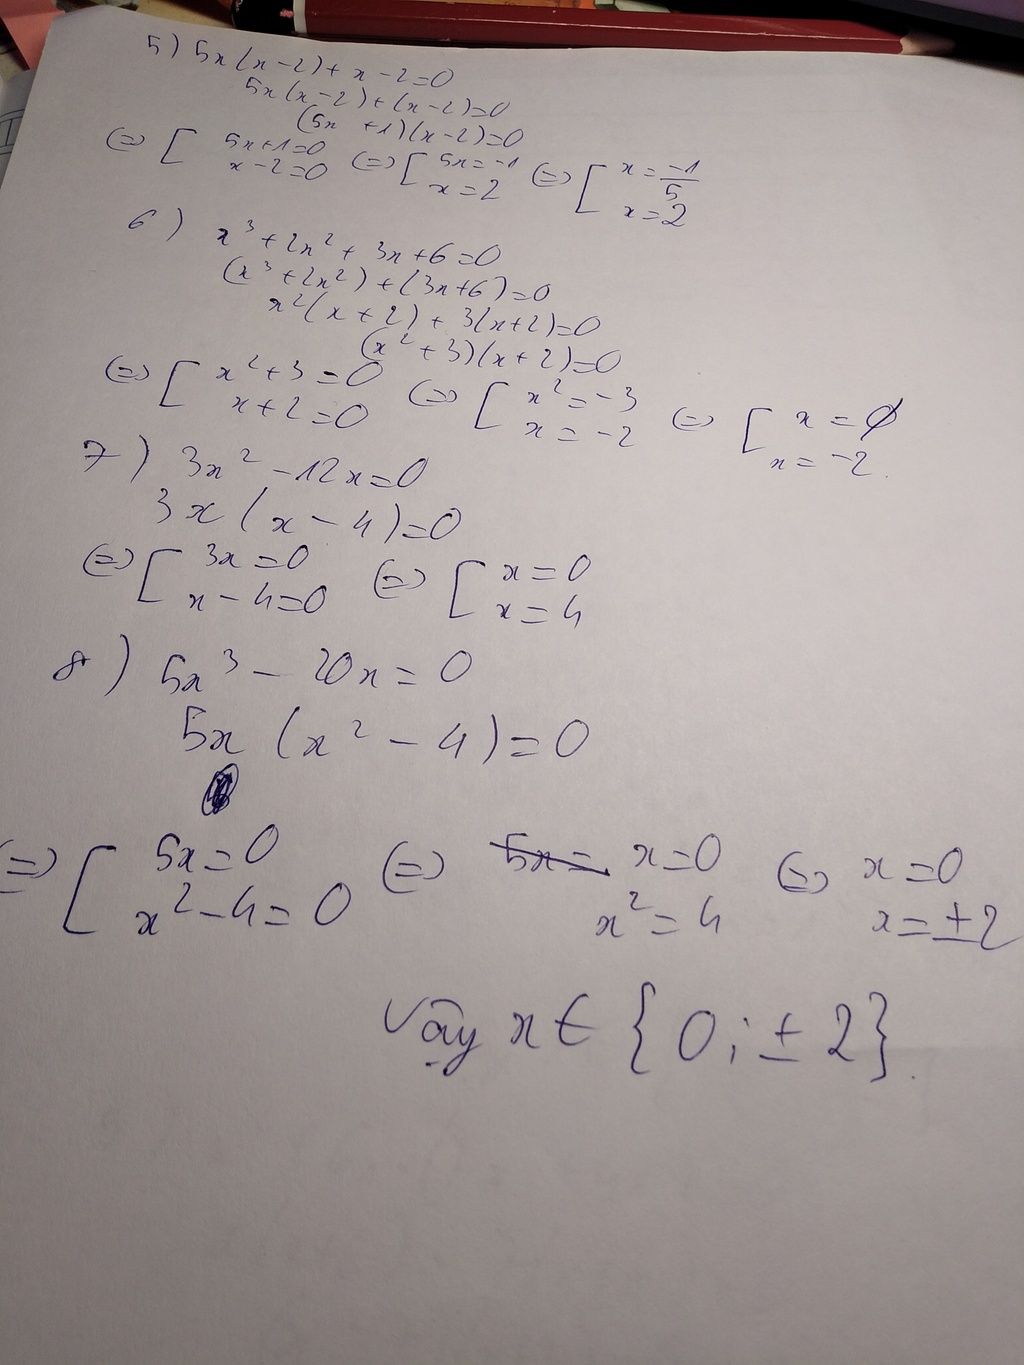 5) 5x(x-2)+x-2=0
5x(x-2)+(x-2)=0
(5x +1)(x-2)=0
⇔ [ 5x+1=0 ⇔ [ 5x=-1 ⇔ [ x=-1/5
x-2=0 x=2 x=2
6) x³+2x²+3x+6=0
(x³+2x²)+(3x+6)=0
x²(x+2)+3(x+2)=0
(x²+3)(x+2)=0
⇔ [ x²+3=0 ⇔ [ x²=-3 ⇔ [ x=∅
x+2=0 x=-2 x=-2.
7) 3x²-12x=0
3x(x-4)=0
⇔ [ 3x=0 ⇔ [ x=0
x-4=0 x=4
8) 5x³-20x=0
5x(x²-4)=0
⇔ [ 5x=0 ⇔ 5x= x=0 ⇔ x=0
x²-4=0 x²=4 x=±2
Vậy x∈{0;±2}.